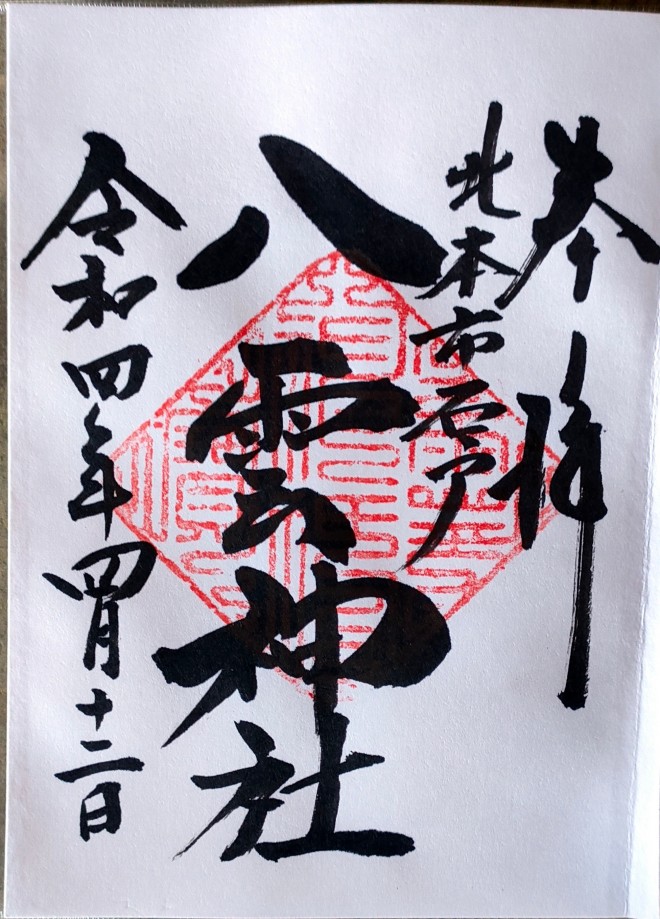 奉拝
北本市石戸
八雲神社
令和四年四月十二日